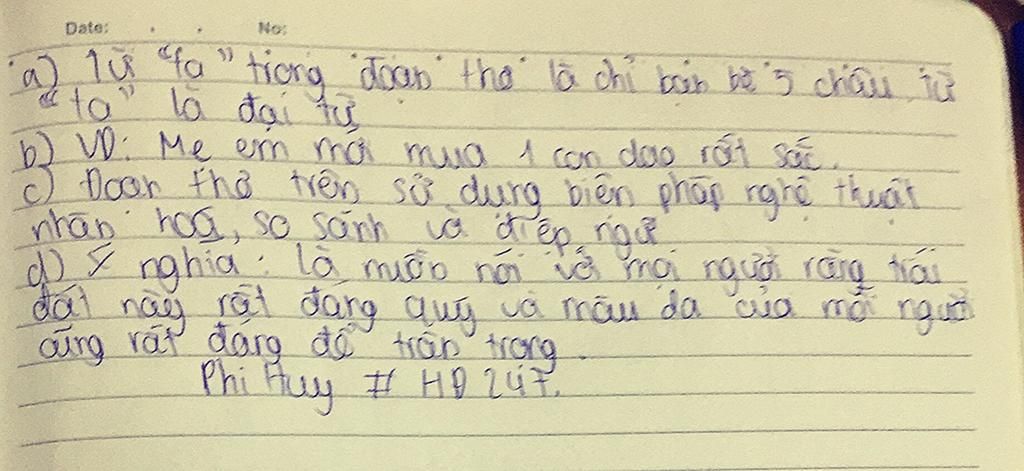 Date: . . No:
a) Từ "ta" trong đoạn thơ là chỉ bạn bè 5 châu, từ
"ta" là đại từ
b) VD: Mẹ em mới mua 1 con dao rất sắc.
c) Đoạn thơ trên sử dụng biện pháp nghệ thuật
nhân hoá, so sánh và điệp ngữ
d) Ý nghĩa: Là muốn nói với mọi người rằng trái
đất này rất đáng quý và màu da của mỗi người
cũng rất đáng để trân trọng.
Phi Huy # HĐ 247.